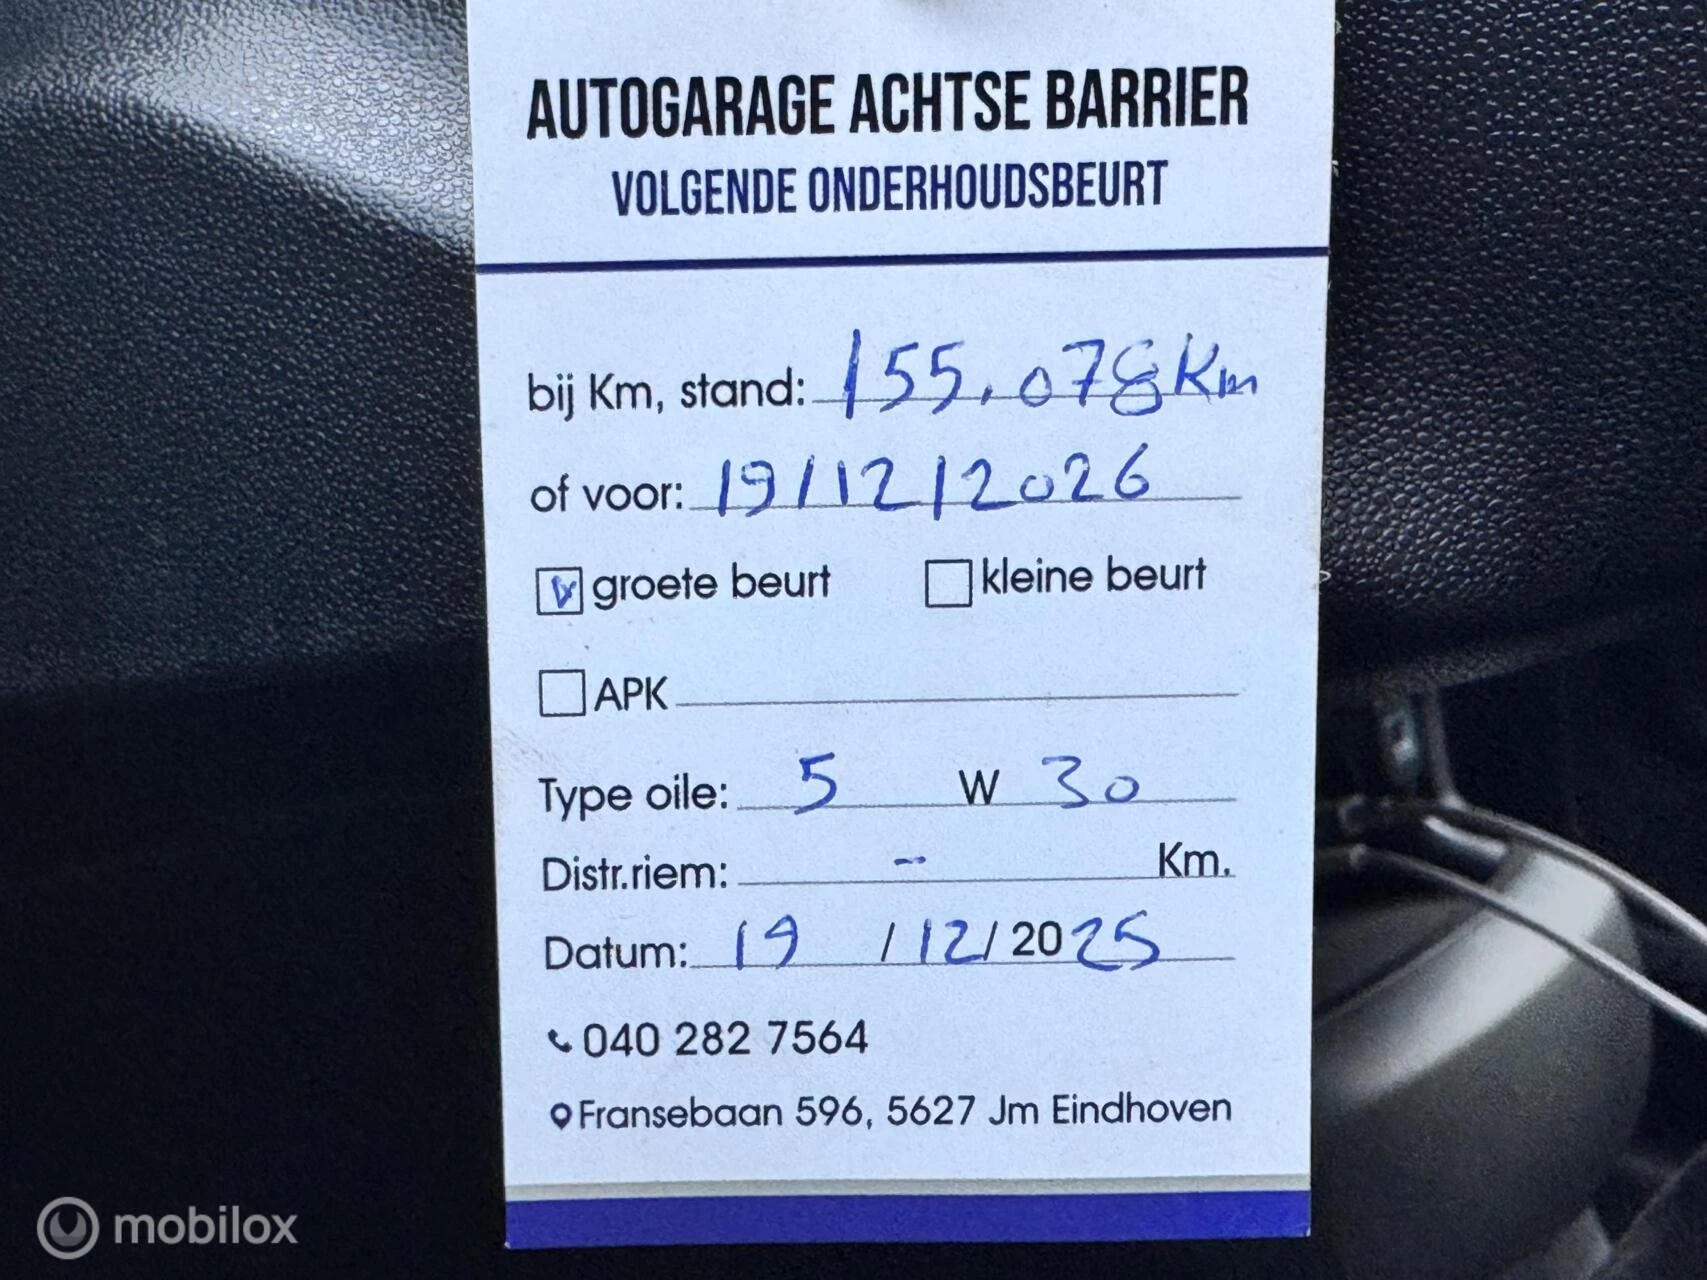 AUTOGARAGE ACHTSE BARRIER
VOLGENDE ONDERHOUDSBEURT
bij Km, stand: 155.078 Km
of voor: 19/12/2026
groete beurt kleine beurt
APK
Type oile: 5 W 30
Distr.riem: -- Km.
Datum: 19 /12/ 2025
040 282 7564
Fransebaan 596, 5627 Jm Eindhoven
mobilox